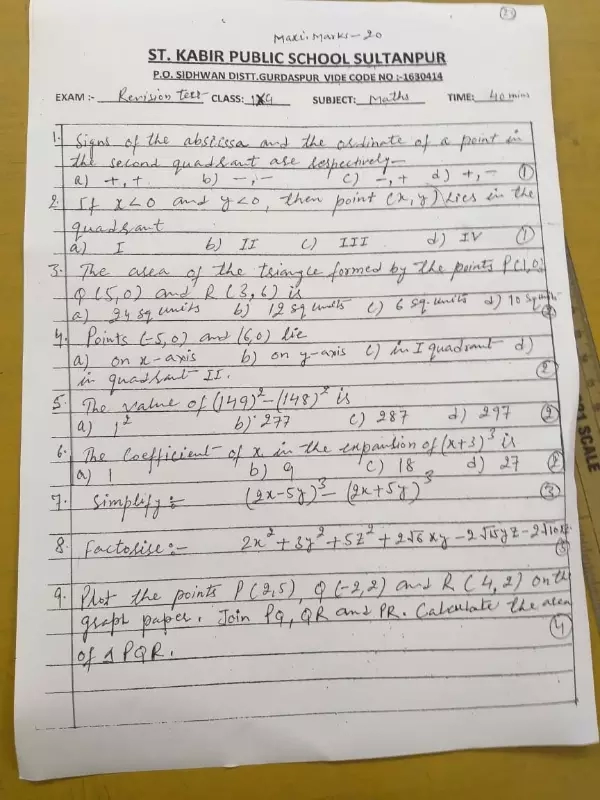 Maxi. Marks - 20
ST. KABIR PUBLIC SCHOOL SULTANPUR
P.O. SIDHWAN DISTT.GURDASPUR VIDE CODE NO :-1630414
EXAM :- Revision test CLASS: IX G SUBJECT: Maths TIME: 40 mins
1. Signs of the abscissa and the ordinate of a point in
the second quadrant are respectively -
a) +, + b) -, - c) -, + d) +, - (1)
2. If x<0 and y<0, then point (x, y) lies in the
quadrant
a) I b) II c) III d) IV (1)
3. The area of the triangle formed by the points P(1,0)
Q (5,0) and R (3,6) is
a) 24 sq units b) 12 sq units c) 6 sq. units d) 10 sq units
4. Points (-5,0) and (6,0) lie
a) on x-axis b) on y-axis c) in I quadrant d)
in quadrant II. (2)
5. The value of (149)² - (148)² is
a) 1² b) 277 c) 287 d) 297 (2)
6. The Coefficient of x in the expantion of (x+3)³ is
a) 1 b) 9 c) 18 d) 27 (2)
7. Simplify :- (2x-5y)³ - (2x+5y)³ (3)
8. Factorise :- 2x² + 3y² + 5z² + 2√6 xy - 2√15 yz - 2√10 xz
(3)
9. Plot the points P(2,5), Q(-2,2) and R(4,2) on the
graph paper. Join PQ, QR and PR. Calculate the area
of Δ PQR. (4)
SCALE